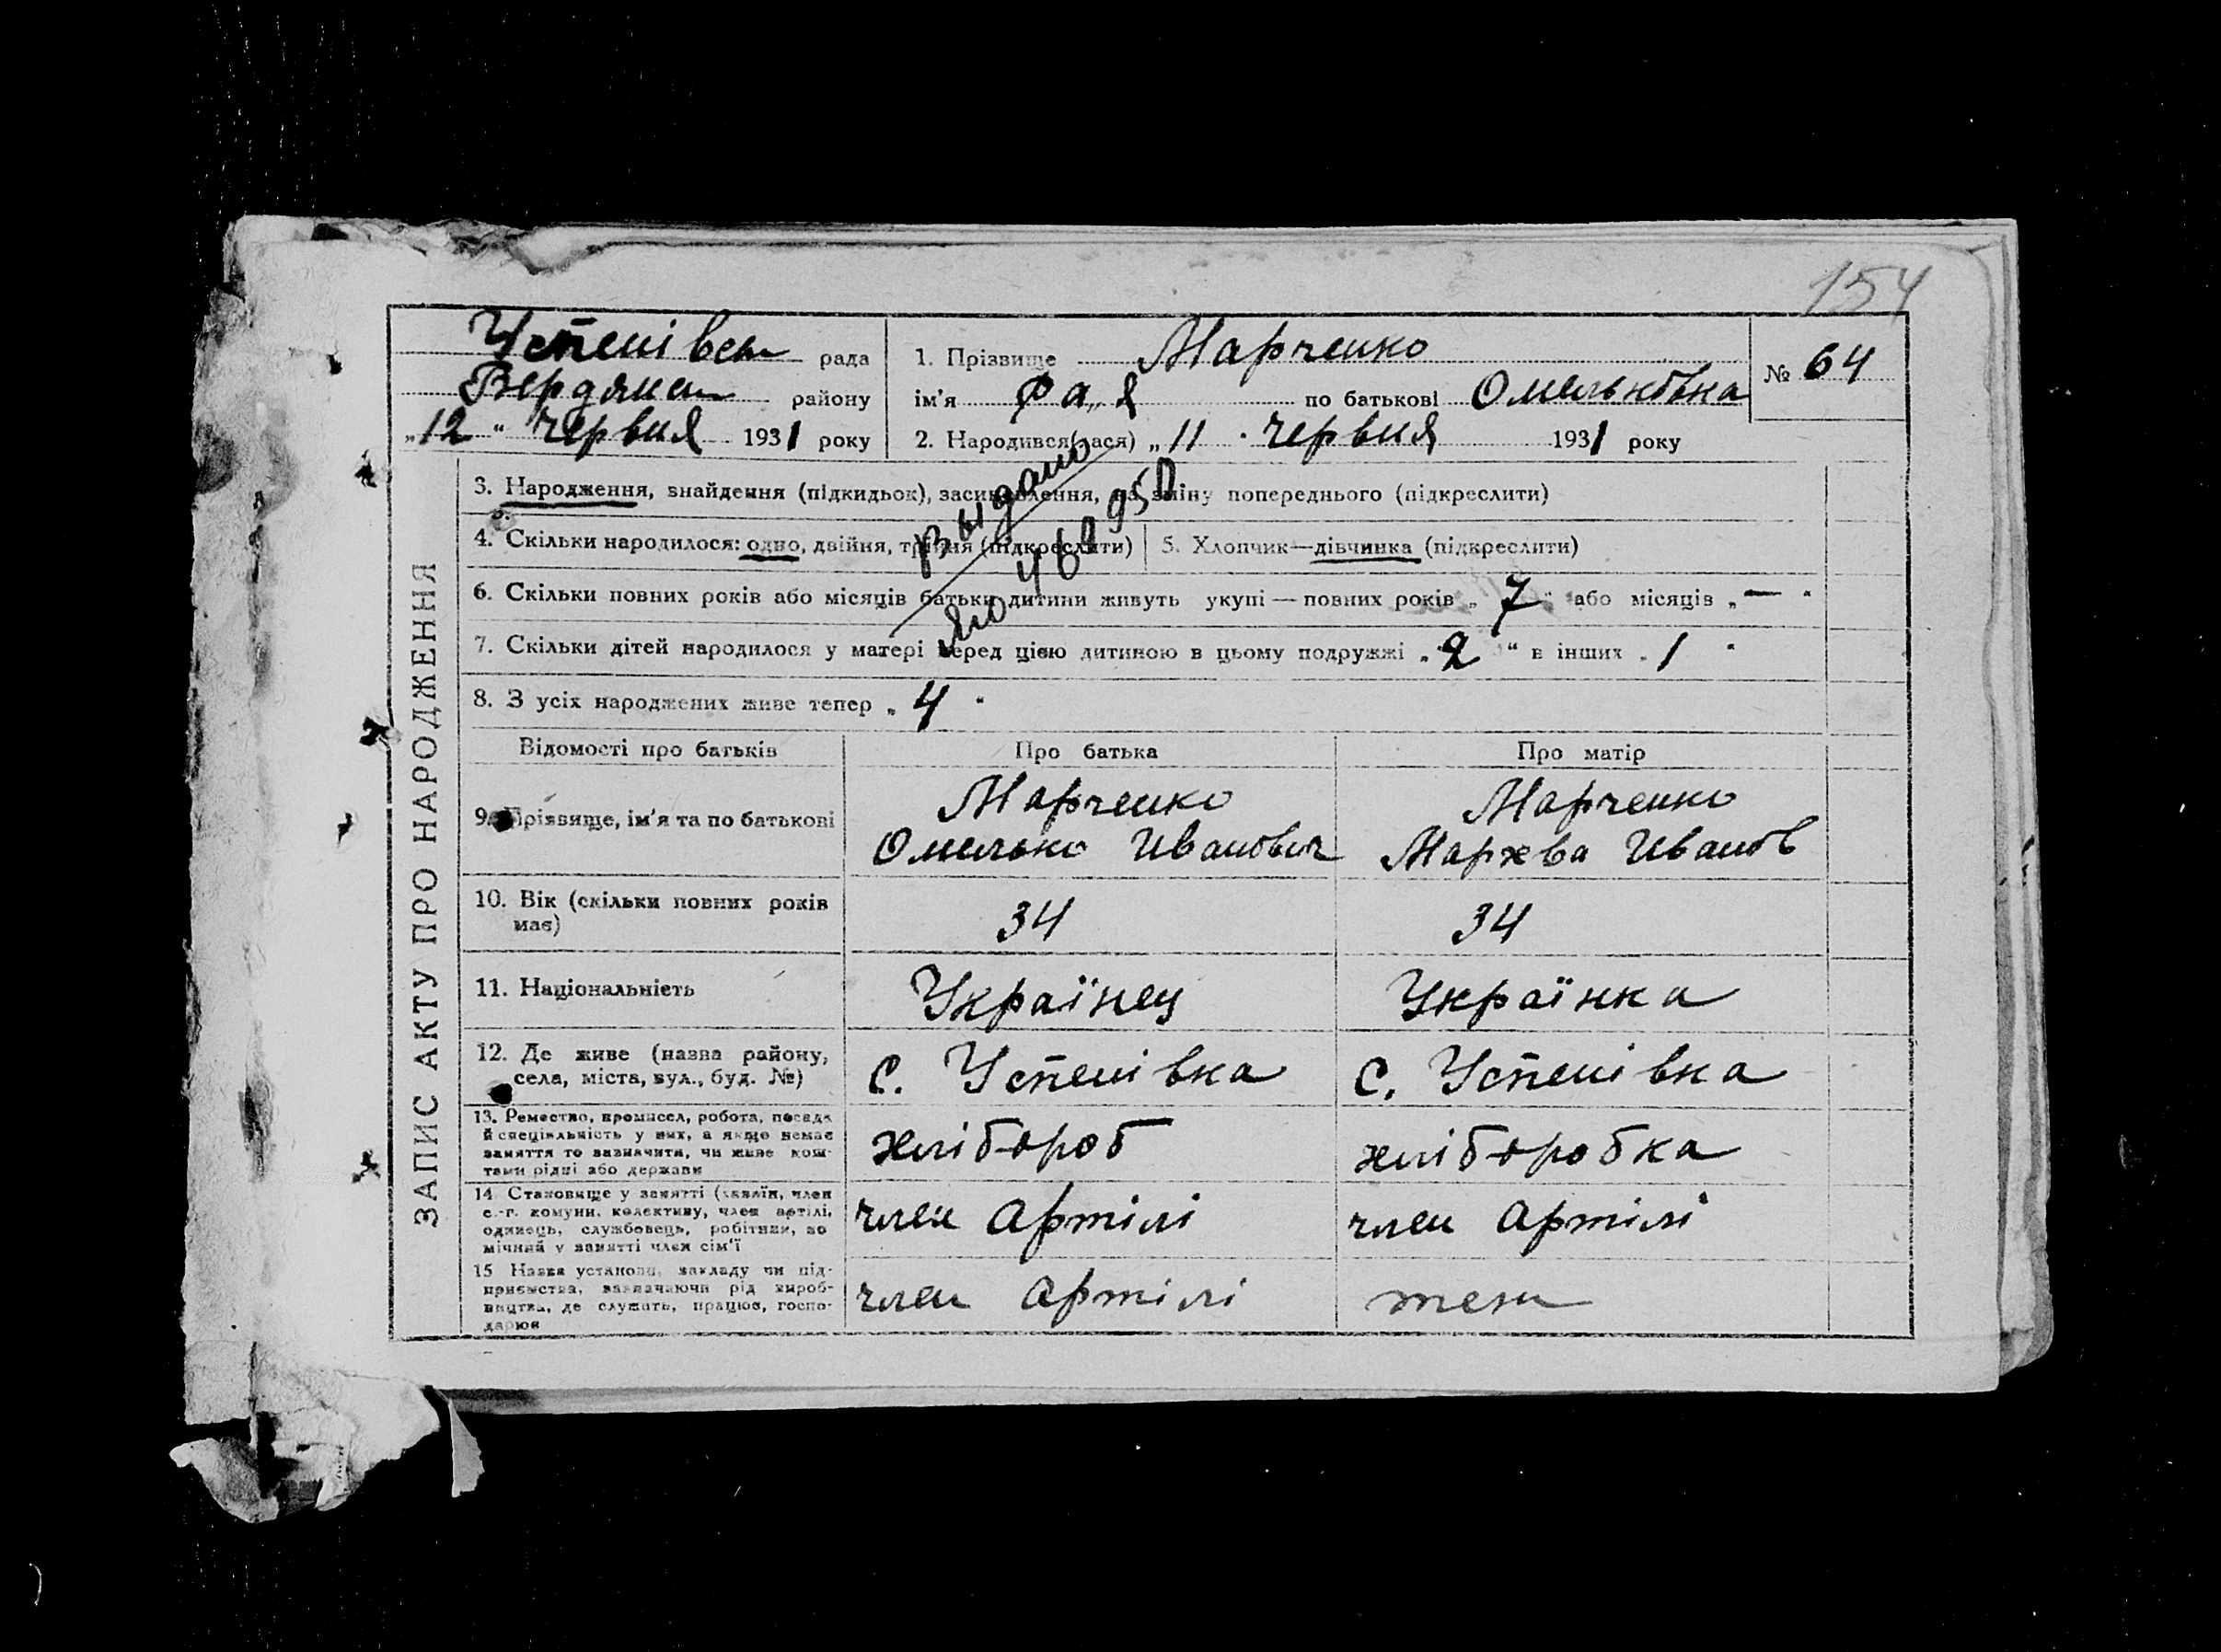 154
Успенівськ рада
Бердянськ району
„12“ червня 1931 року
1. Прізвище Марченко
ім'я Фая по батькові Омельковна
2. Народився(лася) „11 червня 1931 року
№ 64
ЗАПИС АКТУ ПРО НАРОДЖЕННЯ
3. Народження, знайдення (підкидьок), засиновлення, на зміну попереднього (підкреслити)
4. Скільки народилося: одно, двійня, трійня (підкреслити)
5. Хлопчик—дівчинка (підкреслити)
Выдано
460950
6. Скільки повних років або місяців батьки дитини живуть укупі — повних років „7“ або місяців „—“
7. Скільки дітей народилося у матері перед цією дитиною в цьому подружжі „2“ в інших „1“
8. З усіх народжених живе тепер „4“
Відомості про батьків
Про батька
Про матір
9. Прізвище, ім'я та по батькові
Марченко
Омелько Иванович
Марченко
Мархва Иванов
10. Вік (скільки повних років
має)
34
34
11. Національність
Українец
Українка
12. Де живе (назва району,
села, міста, вул., буд. №)
с. Успенівка
с. Успенівка
13. Ремество, промисел, робота, посада
й спеціяльність у них, а якщо немає
заняття то зазначити, чи живе кош-
тами рідні або держави
хлібороб
хлібо­робка
14 Становище у занятті (хазяїн, член
с.-г. комуни, колективу, член артілі,
одинець, службовець, робітник, по
мічний у занятті член сім'ї
член артілі
член артілі
15 Назва установи, закладу чи під-
приємства, зазначаючи рід вироб-
ництва, де служить, працює, госпо-
дарює
член артілі
теж